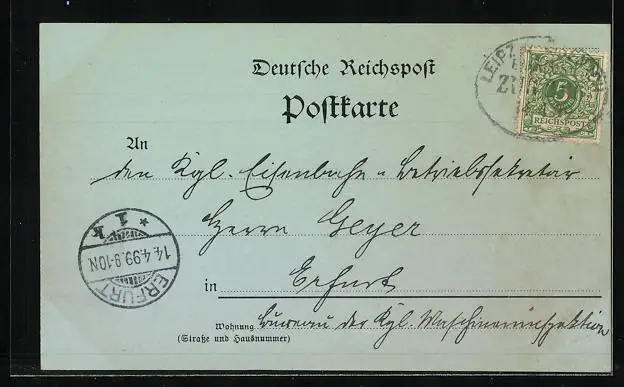 Deutsche Reichspost
Postkarte
LEIPZ
ZU
5
REICHSPOST
An
den Kgl. Eisenbahn-Betriebssekretär
Herrn Geyer
in Erfurt
Wohnung Bureau der Kgl. Maschineninspektion
(Straße und Hausnummer)
ERFURT
14.4.99.9-10N
* 1 k